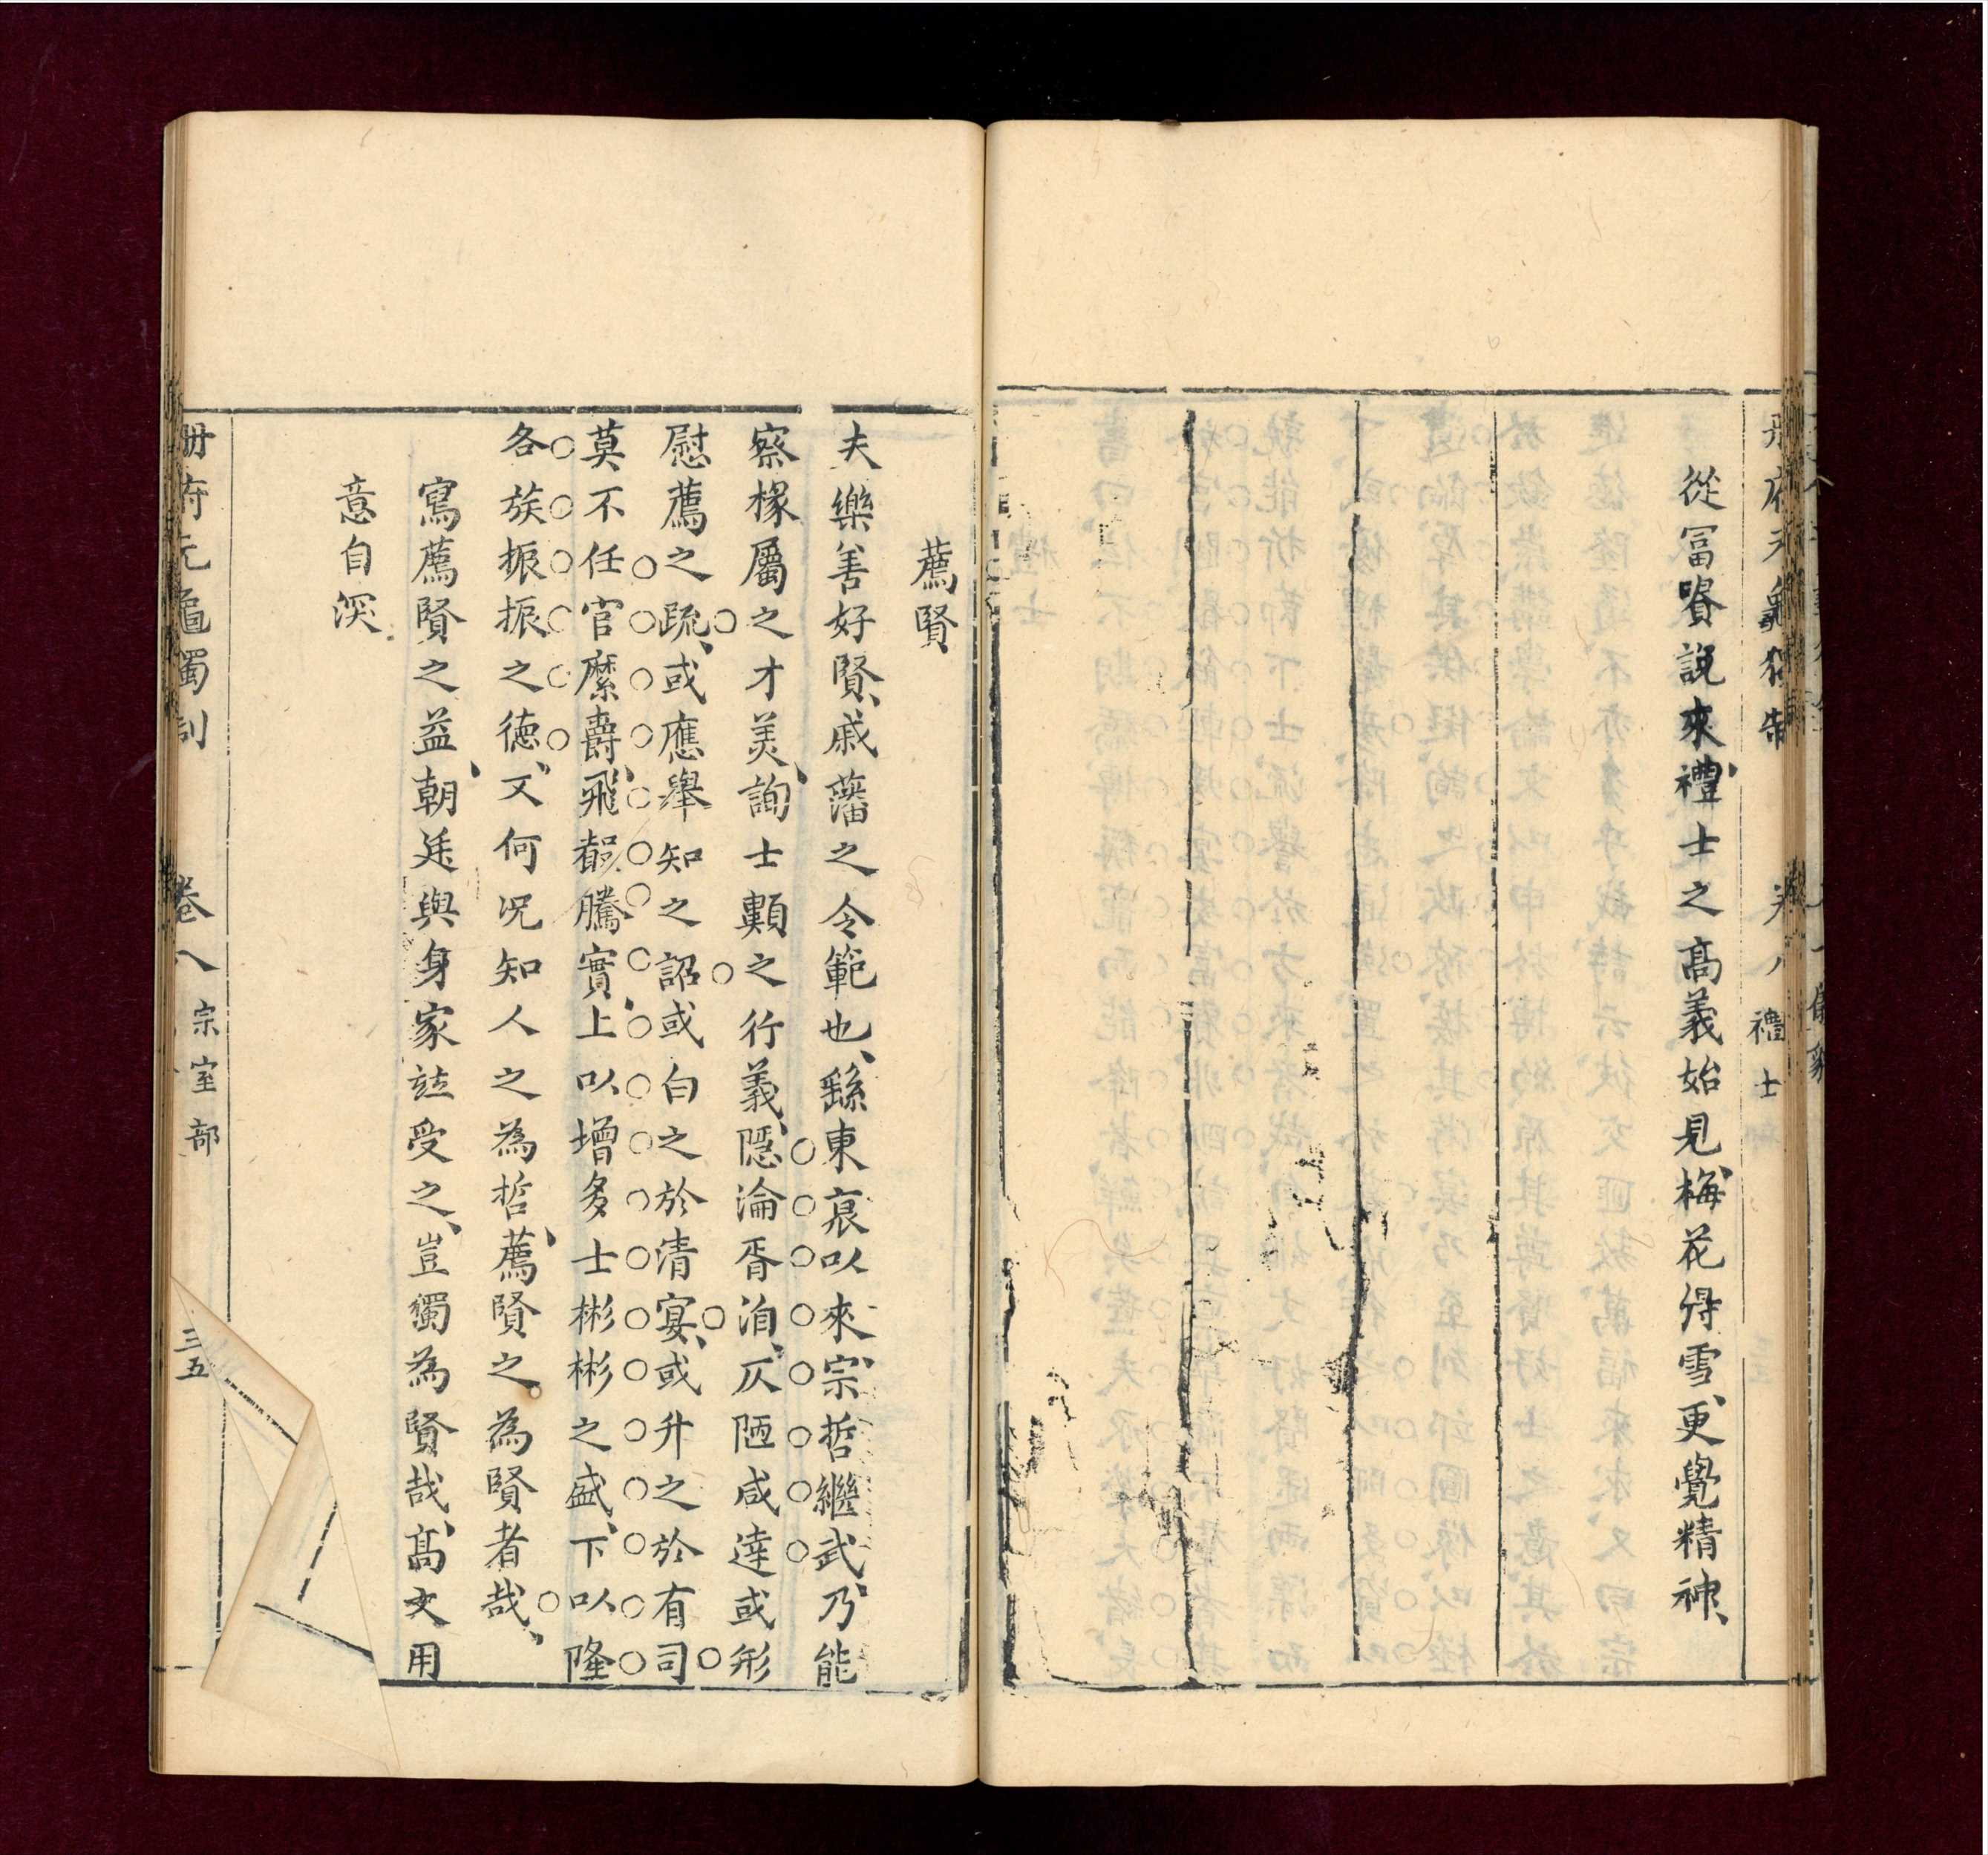 從富貴說來禮士之高義始見梅花得雪更覺精神
卷八 禮士
薦賢
夫樂善好賢戚藩之令範也繇東哀以來宗哲繼武乃能
察椽屬之才美詢士類之行義隱淪胥洎仄陋咸達或形
慰薦之疏或應舉知之詔或白之於清宴或升之於有司
莫不任官縻爵飛聲騰實上以增多士彬彬之盛下以隆
各族振振之德又何况知人之為哲薦賢之為賢者哉
寫薦賢之益朝廷與身家竝受之豈獨為賢哉高文用
意自深
冊府元龜獨制 卷八 宗室部 三五